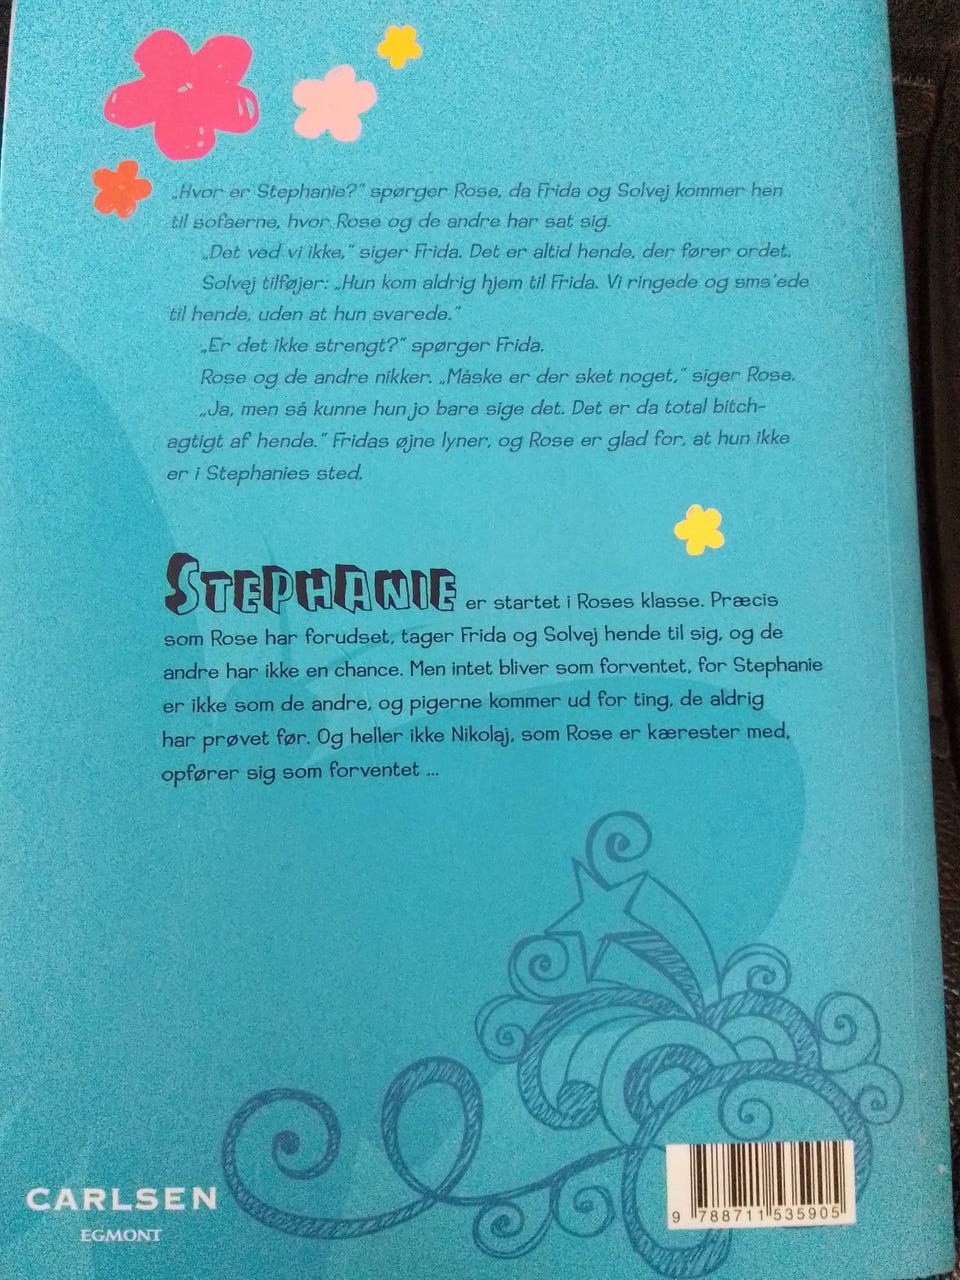 „Hvor er Stephanie?” spørger Rose, da Frida og Solvej kommer hen
til sofaerne, hvor Rose og de andre har sat sig.
„Det ved vi ikke,” siger Frida. Det er altid hende, der fører ordet.
Solvej tilføjer: „Hun kom aldrig hjem til Frida. Vi ringede og sms'ede
til hende, uden at hun svarede.”
„Er det ikke strengt?” spørger Frida.
Rose og de andre nikker. „Måske er der sket noget,” siger Rose.
„Ja, men så kunne hun jo bare sige det. Det er da total bitch-
agtigt af hende.” Fridas øjne lyner, og Rose er glad for, at hun ikke
er i Stephanies sted.
STEPHANIE er startet i Roses klasse. Præcis
som Rose har forudset, tager Frida og Solvej hende til sig, og de
andre har ikke en chance. Men intet bliver som forventet, for Stephanie
er ikke som de andre, og pigerne kommer ud for ting, de aldrig
har prøvet før. Og heller ikke Nikolaj, som Rose er kærester med,
opfører sig som forventet ...
CARLSEN
EGMONT
9 788711 535905